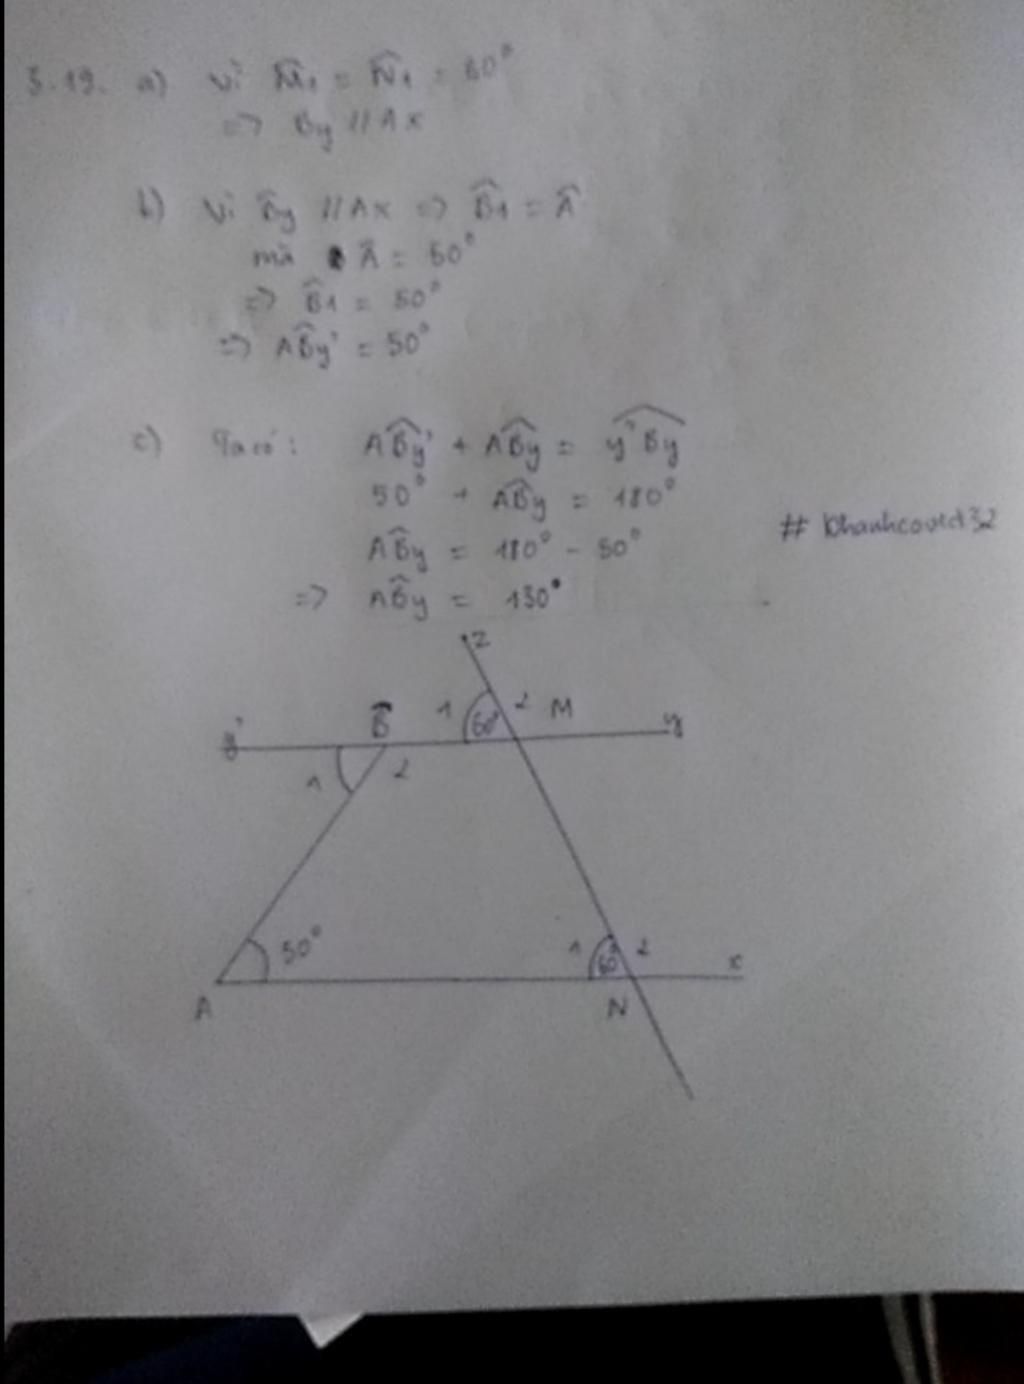 3.19. a) Vì M̂1 = N̂1 = 60°
=> By // Ax
b) Vì By // Ax => B̂1 = Â
mà Â = 50°
=> B̂1 = 50°
=> AB̂y' = 50°
c) Ta có: AB̂y' + AB̂y = y'B̂y
50° + AB̂y = 180°
AB̂y = 180° - 50°
=> AB̂y = 130°
z
y' B̂ 1 60° 2 M y
1 2
A 50° 1 60° 2 N x